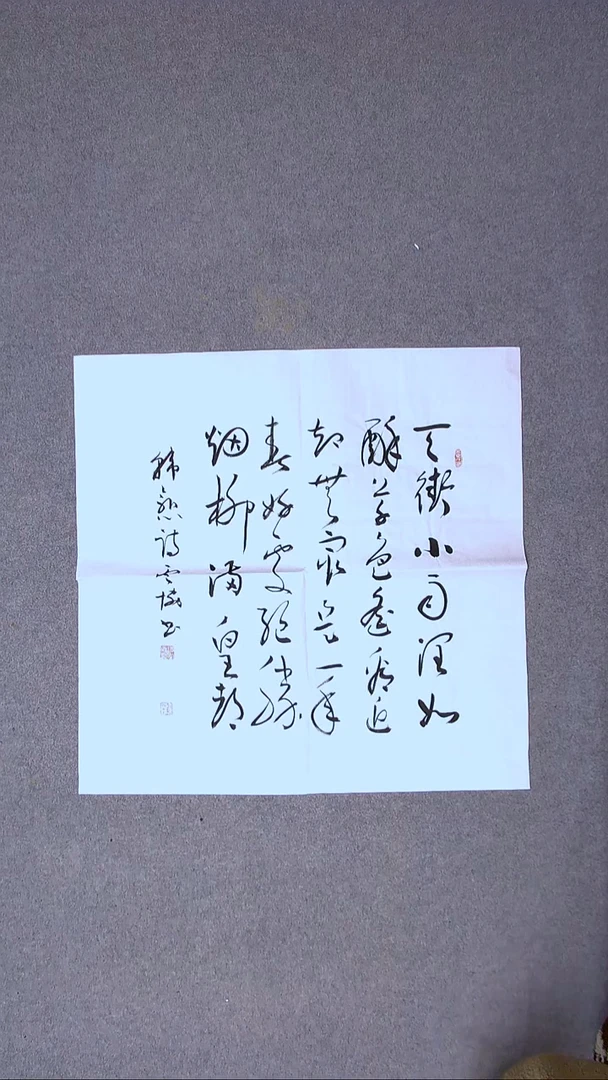 天街小雨润如
酥草色遥看近
却無最是一年
春好处绝胜
烟柳满皇都
韩愈诗云书